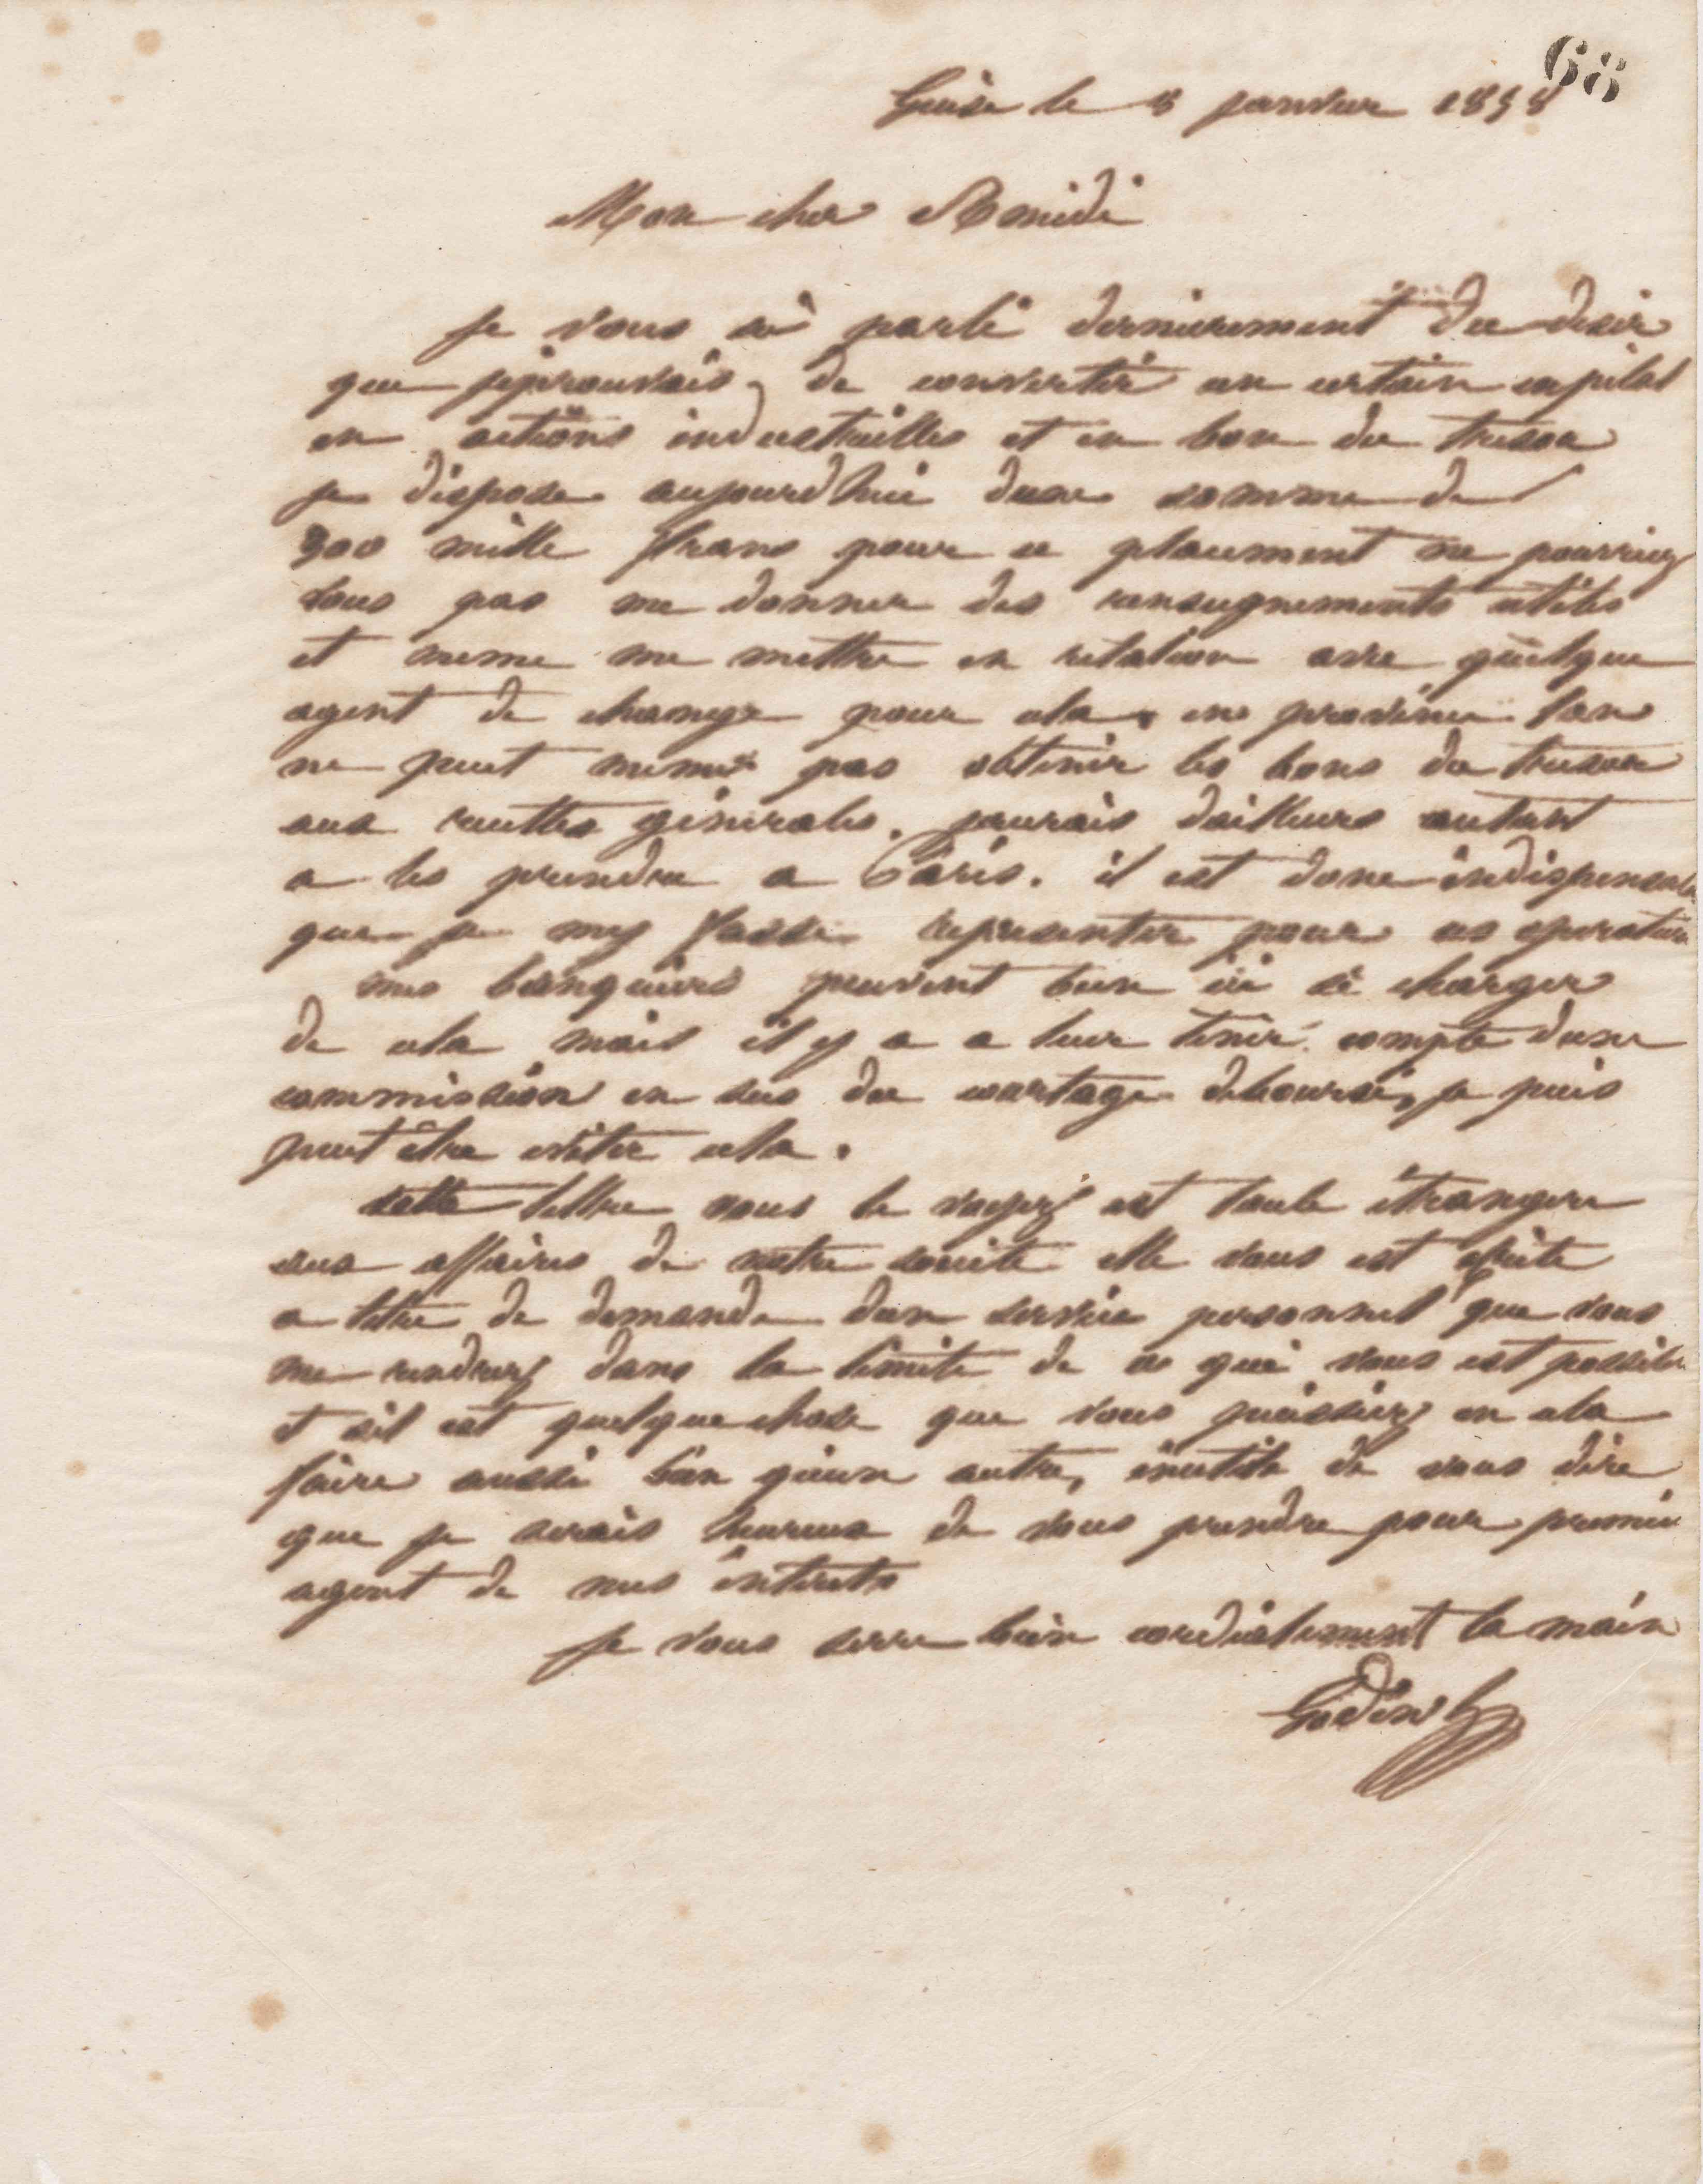 68
Guise le 8 janvier 1858
Mon cher Amédé
Je vous ai parlé dernièrement du desir
que jeprouvais, de convertir un certain capital
en actions industrielles et en bon du tresor
je dispose aujourdhui dune somme de
300 mille frans pour ce placement ne pourriez
vous pas me donner des renseignements utiles
et meme me mettre en relation avec quelque
agent de change pour cela, en province lon
ne peut meme pas obtenir les bons du tresor
aux recettes générales. jaurais dailleurs autant
a les prendre a Paris. il est donc indispensable
que je my fasse representer pour ces operations
mes banquiers peuvent bien ici se charger
de cela mais il y a a leur tenir compte dune
commission en sus du courtage deboursé, je puis
peut être eviter cela.
cette lettre vous le voyez est toute étrangere
aux affaires de notre societe elle vous est ecrite
a titre de demande dun service personnel que vous
me rendrez dans la limite de ce qui vous est possible
et sil est quelque chose que vous puissiez en cela
faire aussi bien quun autre, inutile de vous dire
que je serais heureux de vous prendre pour premier
agent de mes interets
je vous serre bien cordialement la main
Godin